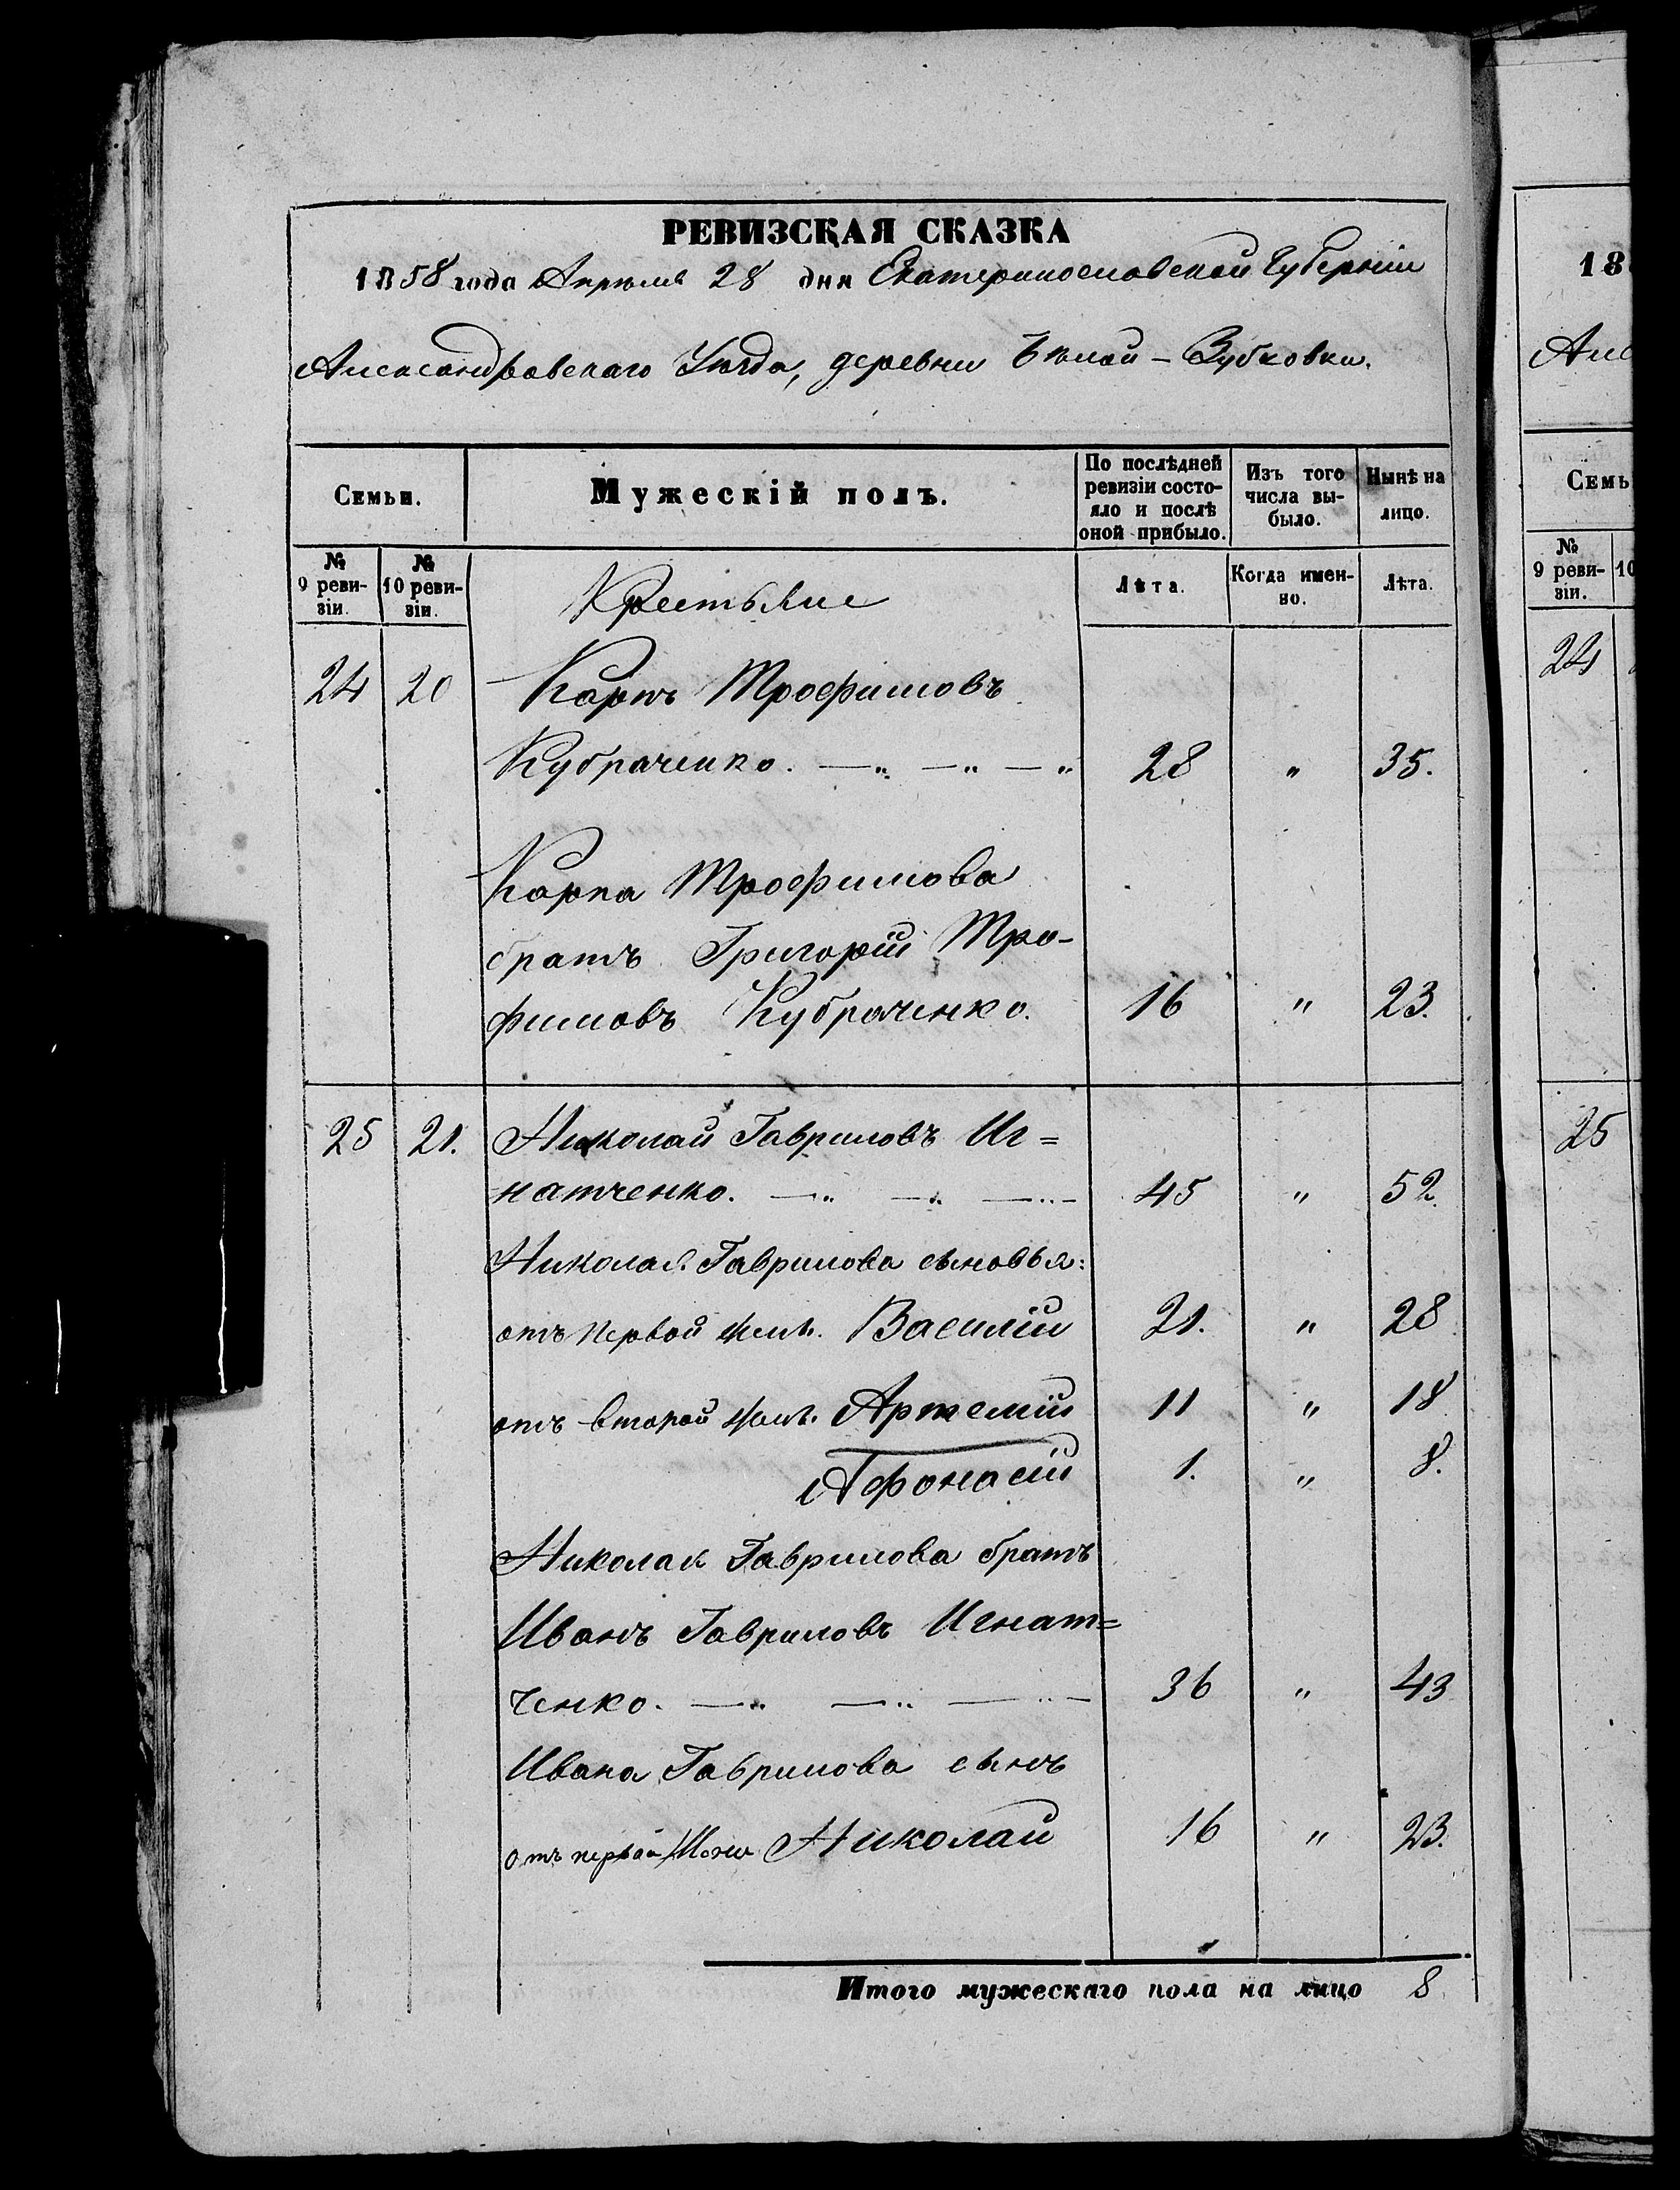 РЕВИЗСКАЯ СКАЗКА
1858 года Апрѣля 28 дня Екатеринославской Губерніи
Александровскаго Уѣзда, деревни Бѣлой-Зубковки.
Семьи. Мужескій полъ. По послѣдней ревизіи состояло и послѣ оной прибыло. Изъ того числа выбыло. Нынѣ на лицо.
№ 9 ревизіи. № 10 ревизіи. Крестьяне Лѣта. Когда именно. Лѣта.
24 20 Карпъ Трофимовъ
Кубраченко. — „ — „ — „ 28 „ 35.
Карпа Трофимова
братъ Григорій Тро-
фимовъ Кубраченко. 16 „ 23.
25 21. Николай Гавриловъ Иг=
натченко. — „ — „ — „ — 45 „ 52.
Николая Гаврилова сыновья:
отъ первой жены. Василій 21. „ 28
отъ второй жены. Артемій 11 „ 18
Афонасій 1. „ 8.
Николая Гаврилова братъ
Иванъ Гавриловъ Игнат=
ченко. — „ — „ — „ — 36 „ 43
Ивана Гаврилова сынъ
отъ первой Жены Николай 16 „ 23.
Итого мужескаго пола на лицо 8.
18
Але
Семь
№ 9 ревизіи. 10
24
25